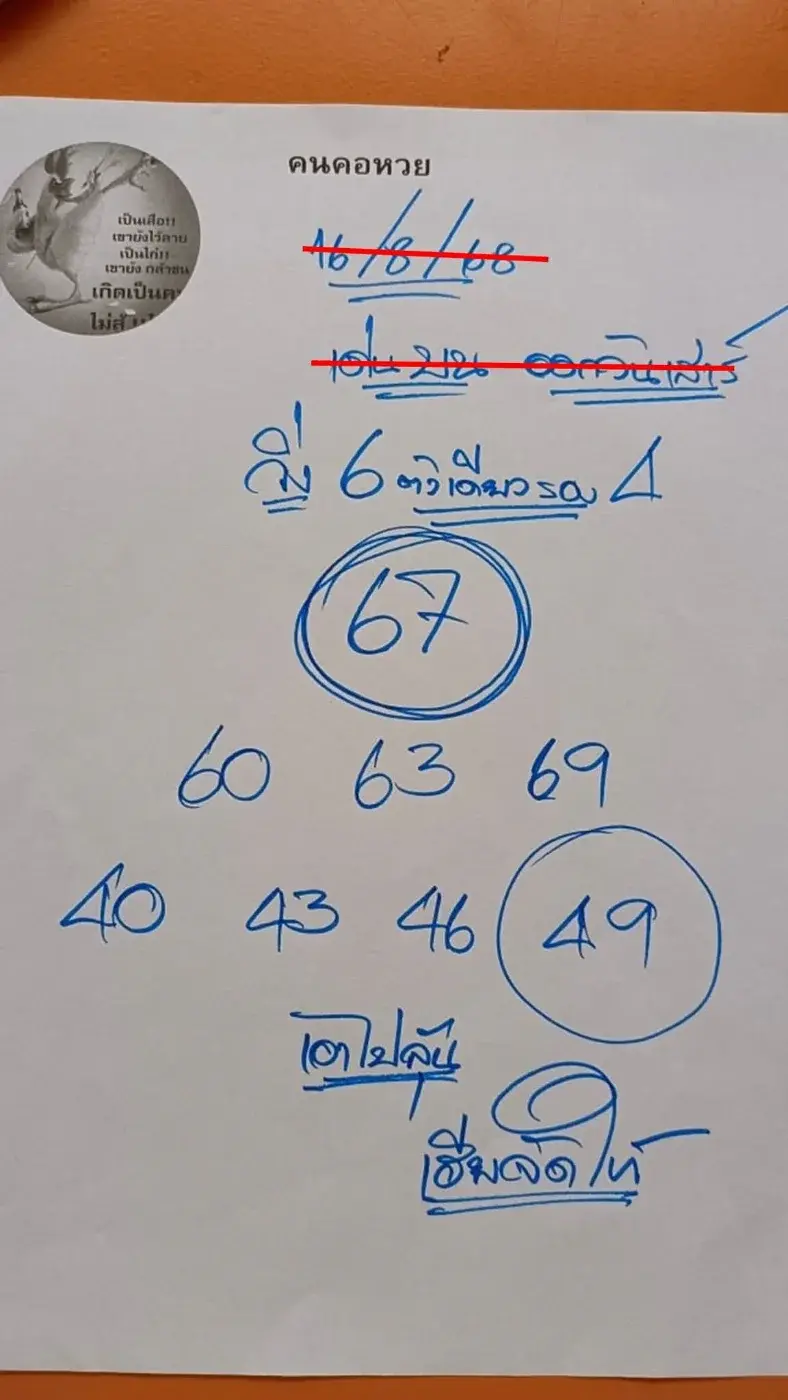 คนคอหวย
เป็นเสือ!!
เขายังไว้ลาย
เป็นไก่!!
เขายัง กล้าชน
เกิดเป็นค
ไม่สู้
16/8/68
เด่นบน ออกวันเสาร์
วิ่ง 6 ตัวเดียวรอง 4
67
60 63 69
40 43 46 49
เอาไปลุ้น
เฮียจัดให้